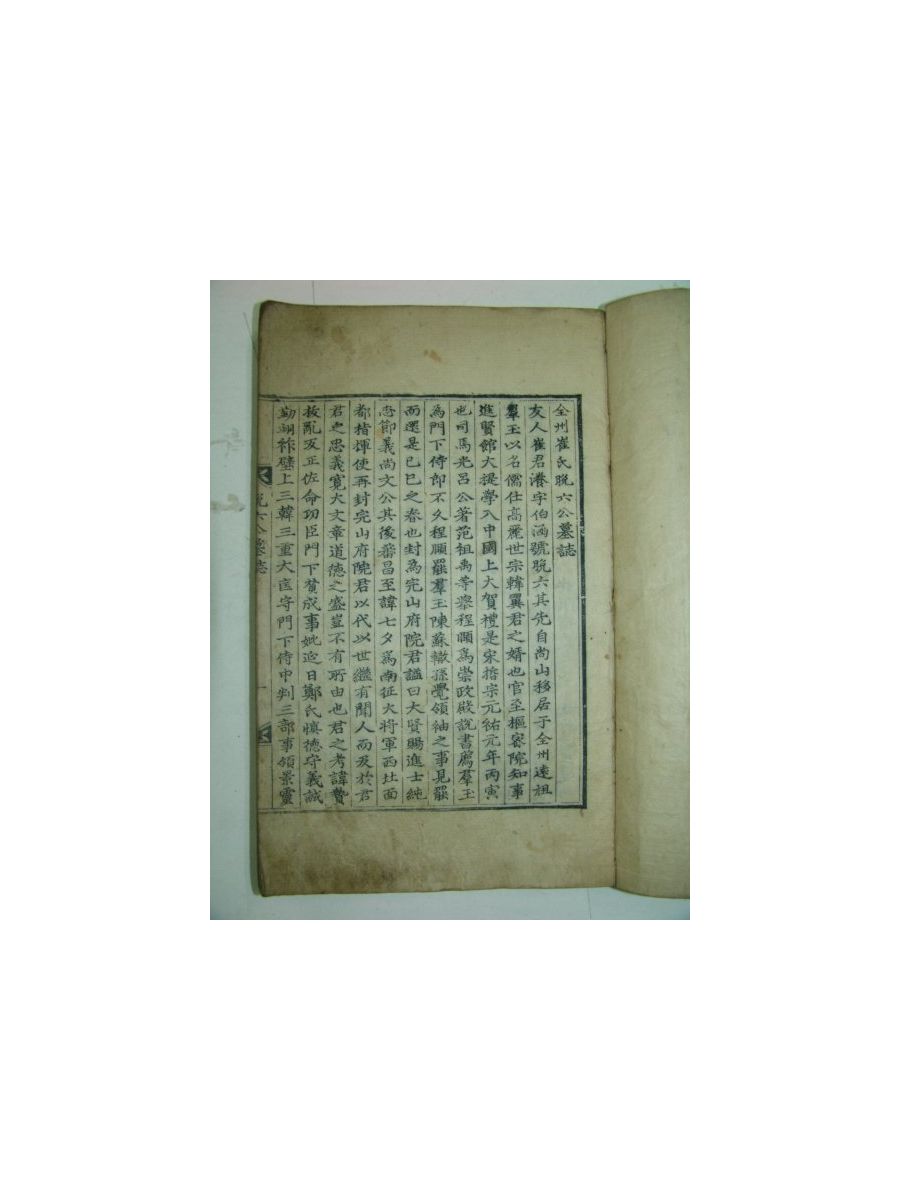 全州崔氏晩六公墓誌
友人崔君瀁字伯涵號晩六其先自尚山移居于全州遠祖
羣玉以名儒仕高麗世宗韓翼君之婿也官至樞密院知事
進賢館大提學入中國上大賀禮是宋哲宗元祐元年丙寅
也司馬光呂公著范祖禹等擧程頤爲崇政殿說書薦羣玉
爲門下侍郎不久程頤罷羣玉陳蘇轍孫覺領袖之事見罷
而還是己巳之春也封爲完山府院君謚曰大賢賜進士純
節義尚文公其後蕃昌至諱七夕爲南征大將軍西
都指揮使再封完山府院君以代以世繼有聞人而及於君
君之忠義寬大文章道德之盛豈不有所由也君之考諱贄
撥亂反正佐命功臣門下贊成事妣迎日鄭氏愼德守義誠
勤翊祚壁上三韓三重大匡守門下侍中判三部事領景靈
晩六公墓誌
一